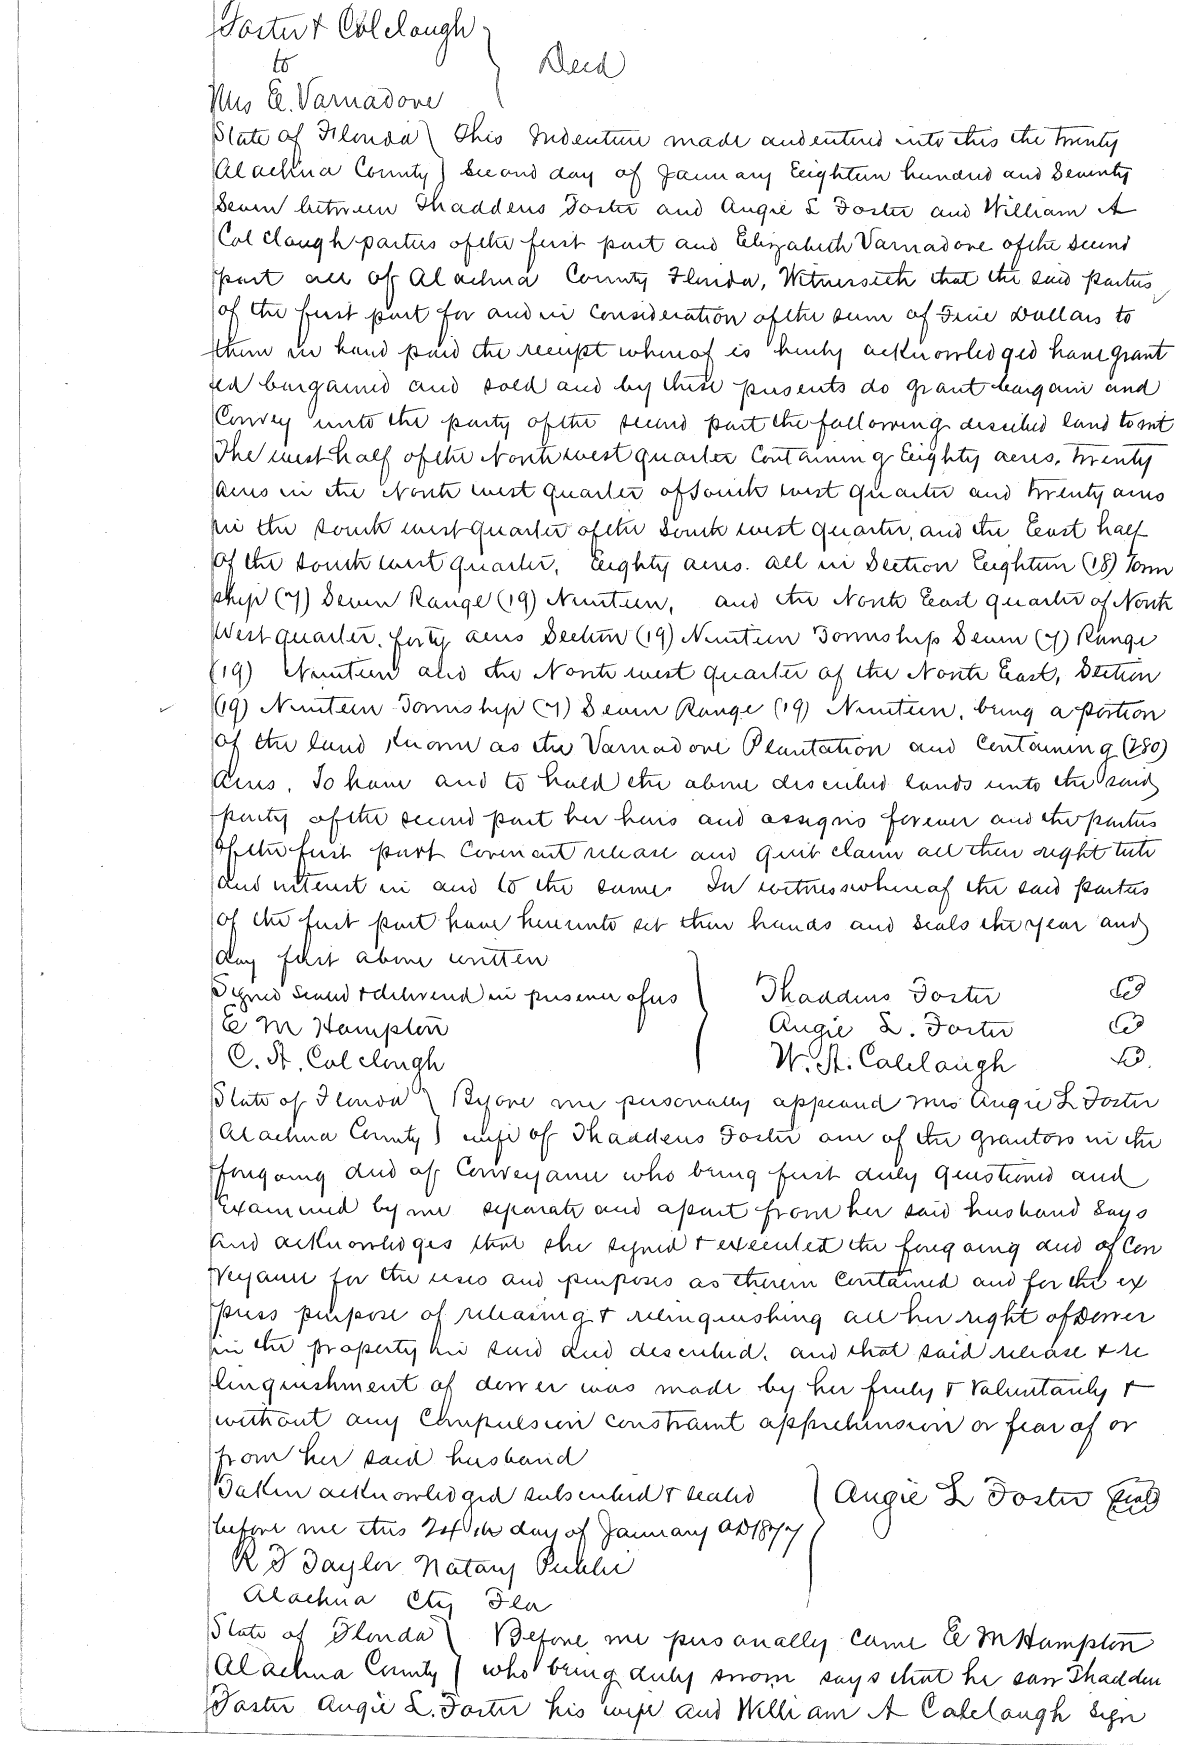 Foster & Colclough
to } Deed
Mrs E. Varnadore
State of Florida } This Indenture made and entered into this the twenty
Alachua County } second day of January Eighteen hundred and Seventy
Seven between Thaddeus Foster and Angie L Foster and William A
Colclough parties of the first part and Elizabeth Varnadore of the second
part all of Alachua County Florida, Witnesseth that the said parties
of the first part for and in consideration of the sum of Five Dollars to
them in hand paid the receipt whereof is hereby acknowledged have grant
ed bargained and sold and by these presents do grant bargain and
Convey unto the party of the second part the following described land to wit
The west half of the North west quarter Containing Eighty acres. Twenty
acres in the North west quarter of South west quarter and twenty acres
in the south west quarter of the South west quarter, and the East half
of the south west quarter, Eighty acres. all in Section Eighteen (18) Town
ship (7) Seven Range (19) Nineteen, and the North East quarter of North
West quarter. forty acres Section (19) Nineteen Township Seven (7) Range
(19) Nineteen and the North west quarter of the North East, Section
(19) Nineteen Township (7) Seven Range (19) Nineteen, being a portion
of the land known as the Varnadore Plantation and Containing (280)
Acres, To have and to hold the above described lands unto the said
party of the second part her heirs and assigns forever and the parties
of the first part Covenant release and quit claim all their right title
and interest in and to the same. In witness whereof the said parties
of the first part have hereunto set their hands and seals the year and
day first above written
Signed sealed & delivered in presence of us } Thaddeus Foster
E M Hampton Angie L. Foster
C. A. Colclough W. A. Colclough
State of Florida } Before me personally appeared Mrs Angie L Foster
Alachua County } wife of Thaddeus Foster one of the grantors in the
foregoing deed of Conveyance who being first duly questioned and
examined by me separate and apart from her said husband says
and acknowledges that she signed & executed the foregoing deed of Con
veyance for the uses and purposes as therein Contained and for the ex
press purpose of releasing & relinquishing all her right of Dower
in the property in said deed described. and that said release & re
linquishment of dower was made by her freely & Voluntarily &
without any Compulsion constraint apprehension or fear of or
from her said husband
Taken acknowledged subscribed & sealed } Angie L Foster Seal
before me this 24th day of January AD 1877
R F Taylor Notary Public
Alachua Cty Fla
State of Florida } Before me personally came E M Hampton
Alachua County } who being duly sworn says that he saw Thaddeu
Foster Angie L. Foster his wife and William A Colclough sign